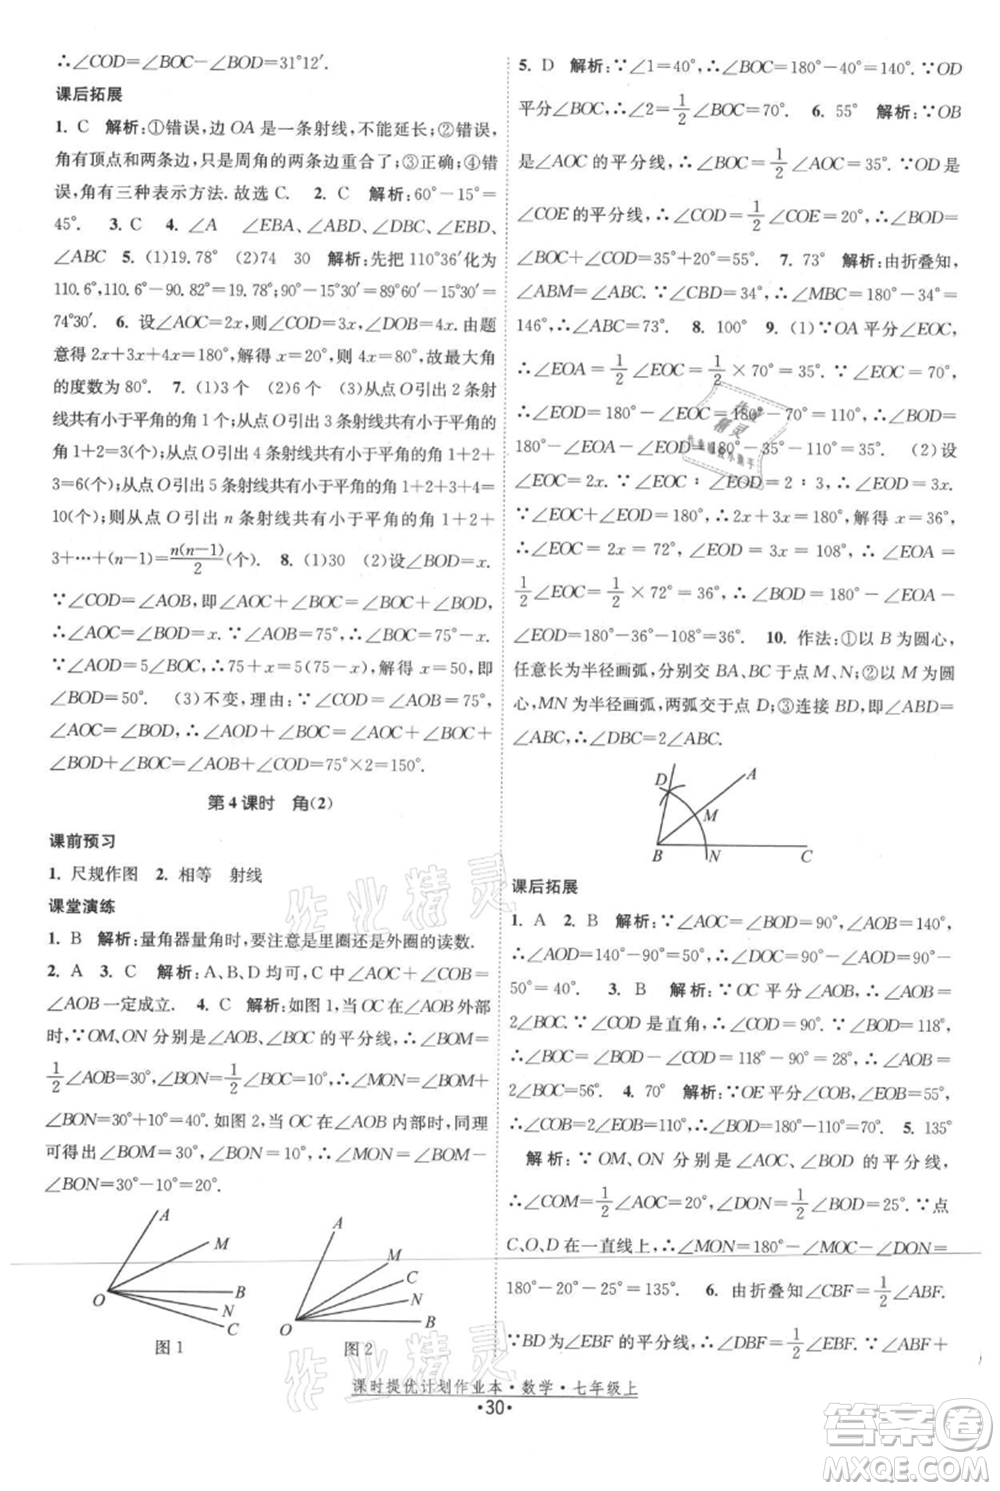 ∴∠COD=∠BOC-∠BOD=31°12′.
课后拓展
1. C 解析:①错误,边 OA 是一条射线,不能延长;②错误,
角有顶点和两条边,只是周角的两条边重合了;③正确;④错
误,角有三种表示方法. 故选 C. 2. C 解析:60°-15°=
45°. 3. C 4. ∠A ∠EBA,∠ABD,∠CBD,∠EBC,
∠ABC 5. (1)19.78° (2)74 30 解析:先把 110°36′化为
110.6°,110.6°-90.8°+54.7°÷
74°30′. 6. 设∠AOC=2x,则∠COD=3x,∠DOB=4x. 由题
意得 2x+3x+4x=180°,解得 x=20°,则 4x=80°,故最大角
的度数为 80°. 7. (1)3个 (2)6个 (3)从点 O 引出 2 条射
线共有小于平角的角 1 个;从点 O 引出 3 条射线共有小于平角的角 1+
2=3(个);从点 O 引出 4 条射线共有小于平角的角 1+2+
3=6(个);从点 O 引出 5 条射线共有小于平角的角 1+2+3+4=
10(个);则从点 O 引出 n 条射线共有小于平角的角 1+2+
3+…+(n-1)=n(n-1)/2(个). 8. (1)30 (2)设∠BOD=x.
∵∠COD=∠AOB,即∠AOC+∠BOC=∠BOC+∠BOD,
∴∠AOC=∠BOD=x. ∵∠AOB=75°,∴∠BOC=75°-x.
∵∠AOD=5∠BOC,∴150°-(75°-x)=5(75°-x),解得 x=50°,即
∠BOD=50°. (3)不变,理由:∵∠COD=∠AOB=75°,
∠AOC=∠BOD,∴∠AOD+∠BOC=∠AOB+∠BOD+
∠BOC=∠AOB+∠COD=75°×2=150°.
第 4 课时 角(2)
课前预习
1. 尺规作图 2. 相等 射线
课堂演练
1. B 解析:量角器量角时,要注意是里圈还是外圈的读数.
2. A 3. C 解析:A、B、D 均可,C 中∠AOC+∠COB=
∠AOB 一定成立. 4. C 解析:如图 1,当 OC 在∠AOB 外部
时,∵OM,ON 分别是∠AOB,∠BOC 的平分线,∴∠BOM=
1/2∠AOB=30°,∠BON=1/2∠BOC=10°,∴∠MON=∠BOM+
∠BON=30°+10°=40°. 如图 2,当 OC 在∠AOB 内部时,
∵OM,ON 分别是∠AOB,∠BOC 的平分线,∴∠BOM=
1/2∠AOB=30°,∠BON=1/2∠BOC=10°,∴∠MON=∠BOM-
∠BON=30°-10°=20°.
A
M
B
N
C
O
图 1
A
M
C
N
B
O
图 2
5. D 解析:∵∠1=40°,∴∠BOC=180°-40°=140°. ∵OD
平分∠BOC,∴∠2=1/2∠BOC=70°. 6. 55° 解析:∵OB
是∠AOC的平分线,∴∠BOC=1/2∠AOC=35°. ∵OD 是
∠COE的平分线,∴∠COD=1/2∠COE=20°,∴∠BOD=
35°+20°=55°. 7. 73° 解析:由折叠知,
∠ABM=∠MBC. ∵∠CBD=34°,∴∠MBC=180°-34°=
146°,∴∠ABC=73°. 8. 100° 9. (1)∵OA平分∠EOC,
∴∠EOA=1/2∠EOC=1/2×70°=35°. ∵∠EOC=70°,
∴∠DOE=180°-∠EOC=180°-70°=110°,∴∠BOD=
180°-∠EOA-∠EOD=180°-35°-110°=35°. (2)设
∠EOC=2x. ∵∠EOC∶∠EOD=2∶3,∴∠EOD=3x.
∵∠EOD+∠EOC=180°,∴2x+3x=180°,解得 x=36°,
∴∠EOC=2x=72°,∠EOD=3x=108°,∴∠EOA=
1/2∠EOC=1/2×72°=36°,∴∠BOD=180°-∠EOA-
∠EOD=180°-36°-108°=36°. 10. 作法:①以 B 为圆心,
任意长为半径画弧,分别交 BA、BC 于点 M、N;②以 M 为圆
心,MN 为半径画弧,两弧交于点 D;③连接 BD,即∠ABD=
∠ABC,∴∠DBC=2∠ABC.
D
A
M
B
N
C
课后拓展
1. A 2. B 解析:∵∠AOC=∠BOD=90°,∠AOB=140°,
∴∠AOD=∠AOB-∠BOD=140°-90°=
50°=40°. 3. B 解析:∵OC 平分∠AOB,∴∠AOB=
2∠BOC. ∵∠COD 是直角,∴∠COD=90°. ∵∠BOD=118°,
∴∠BOC=∠BOD-∠COD=118°-90°=28°,∴∠AOB=
2∠BOC=56°. 4. 70° 解析:∵OE平分∠COB,∠EOB=
55°,∴∠COB=110°,∴∠BOD=180°-110°=70°. 5. 135°
解析:∵OM、ON 分别是∠AOC、∠BOD 的平分线,
∴∠COM=1/2∠AOC=20°,∠DON=1/2∠BOD=25°. ∵点
C、O、D 在一直线上,∴∠MON=180°-∠MOC-∠DON=
180°-20°-25°=135°. 6. 由折叠知∠CBF=1/2∠ABF.
∵BD为∠EBF的平分线,∴∠DBF=1/2∠EBF. ∵∠ABF+
课时提优计划作业本·数学·七年级上
·30·
作业精灵
作业精灵
答案圈
MXQE.COM